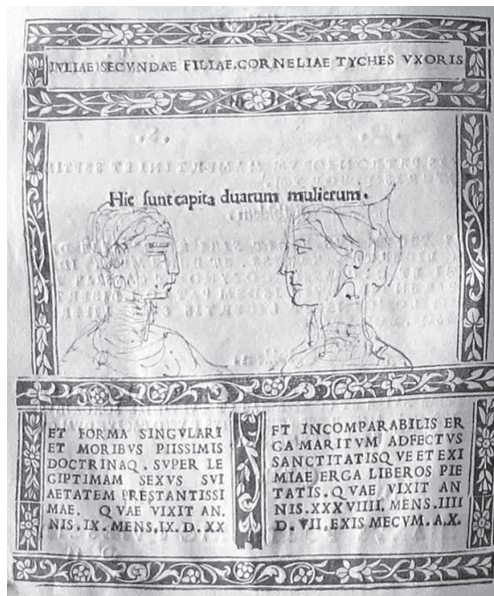 IVLIAE SECVNDAE FILIAE. CORNELIAE TYCHES VXORIS
Hic sunt capita duarum mulierum.
ET FORMA SINGVLARI
ET MORIBVS PIISSIMIS
DOCTRINAQ. SVPER LE
GIPTIMAM SEXVS SVI
AETATEM PRESTANTISSI
MAE. QVAE VIXIT AN.
NIS. IX. MENS, IX. D. XX
ET INCOMPARABILIS ER
GA MARITVM ADFECTVS
SANCTITATISQ VE ET EXI
MIAE ERGA LIBEROS PIE
TATIS. Q VAE VIXIT AN
NIS. XXXVIIII. MENS. IIII
D. VII. EXIS MECVM. A.X.